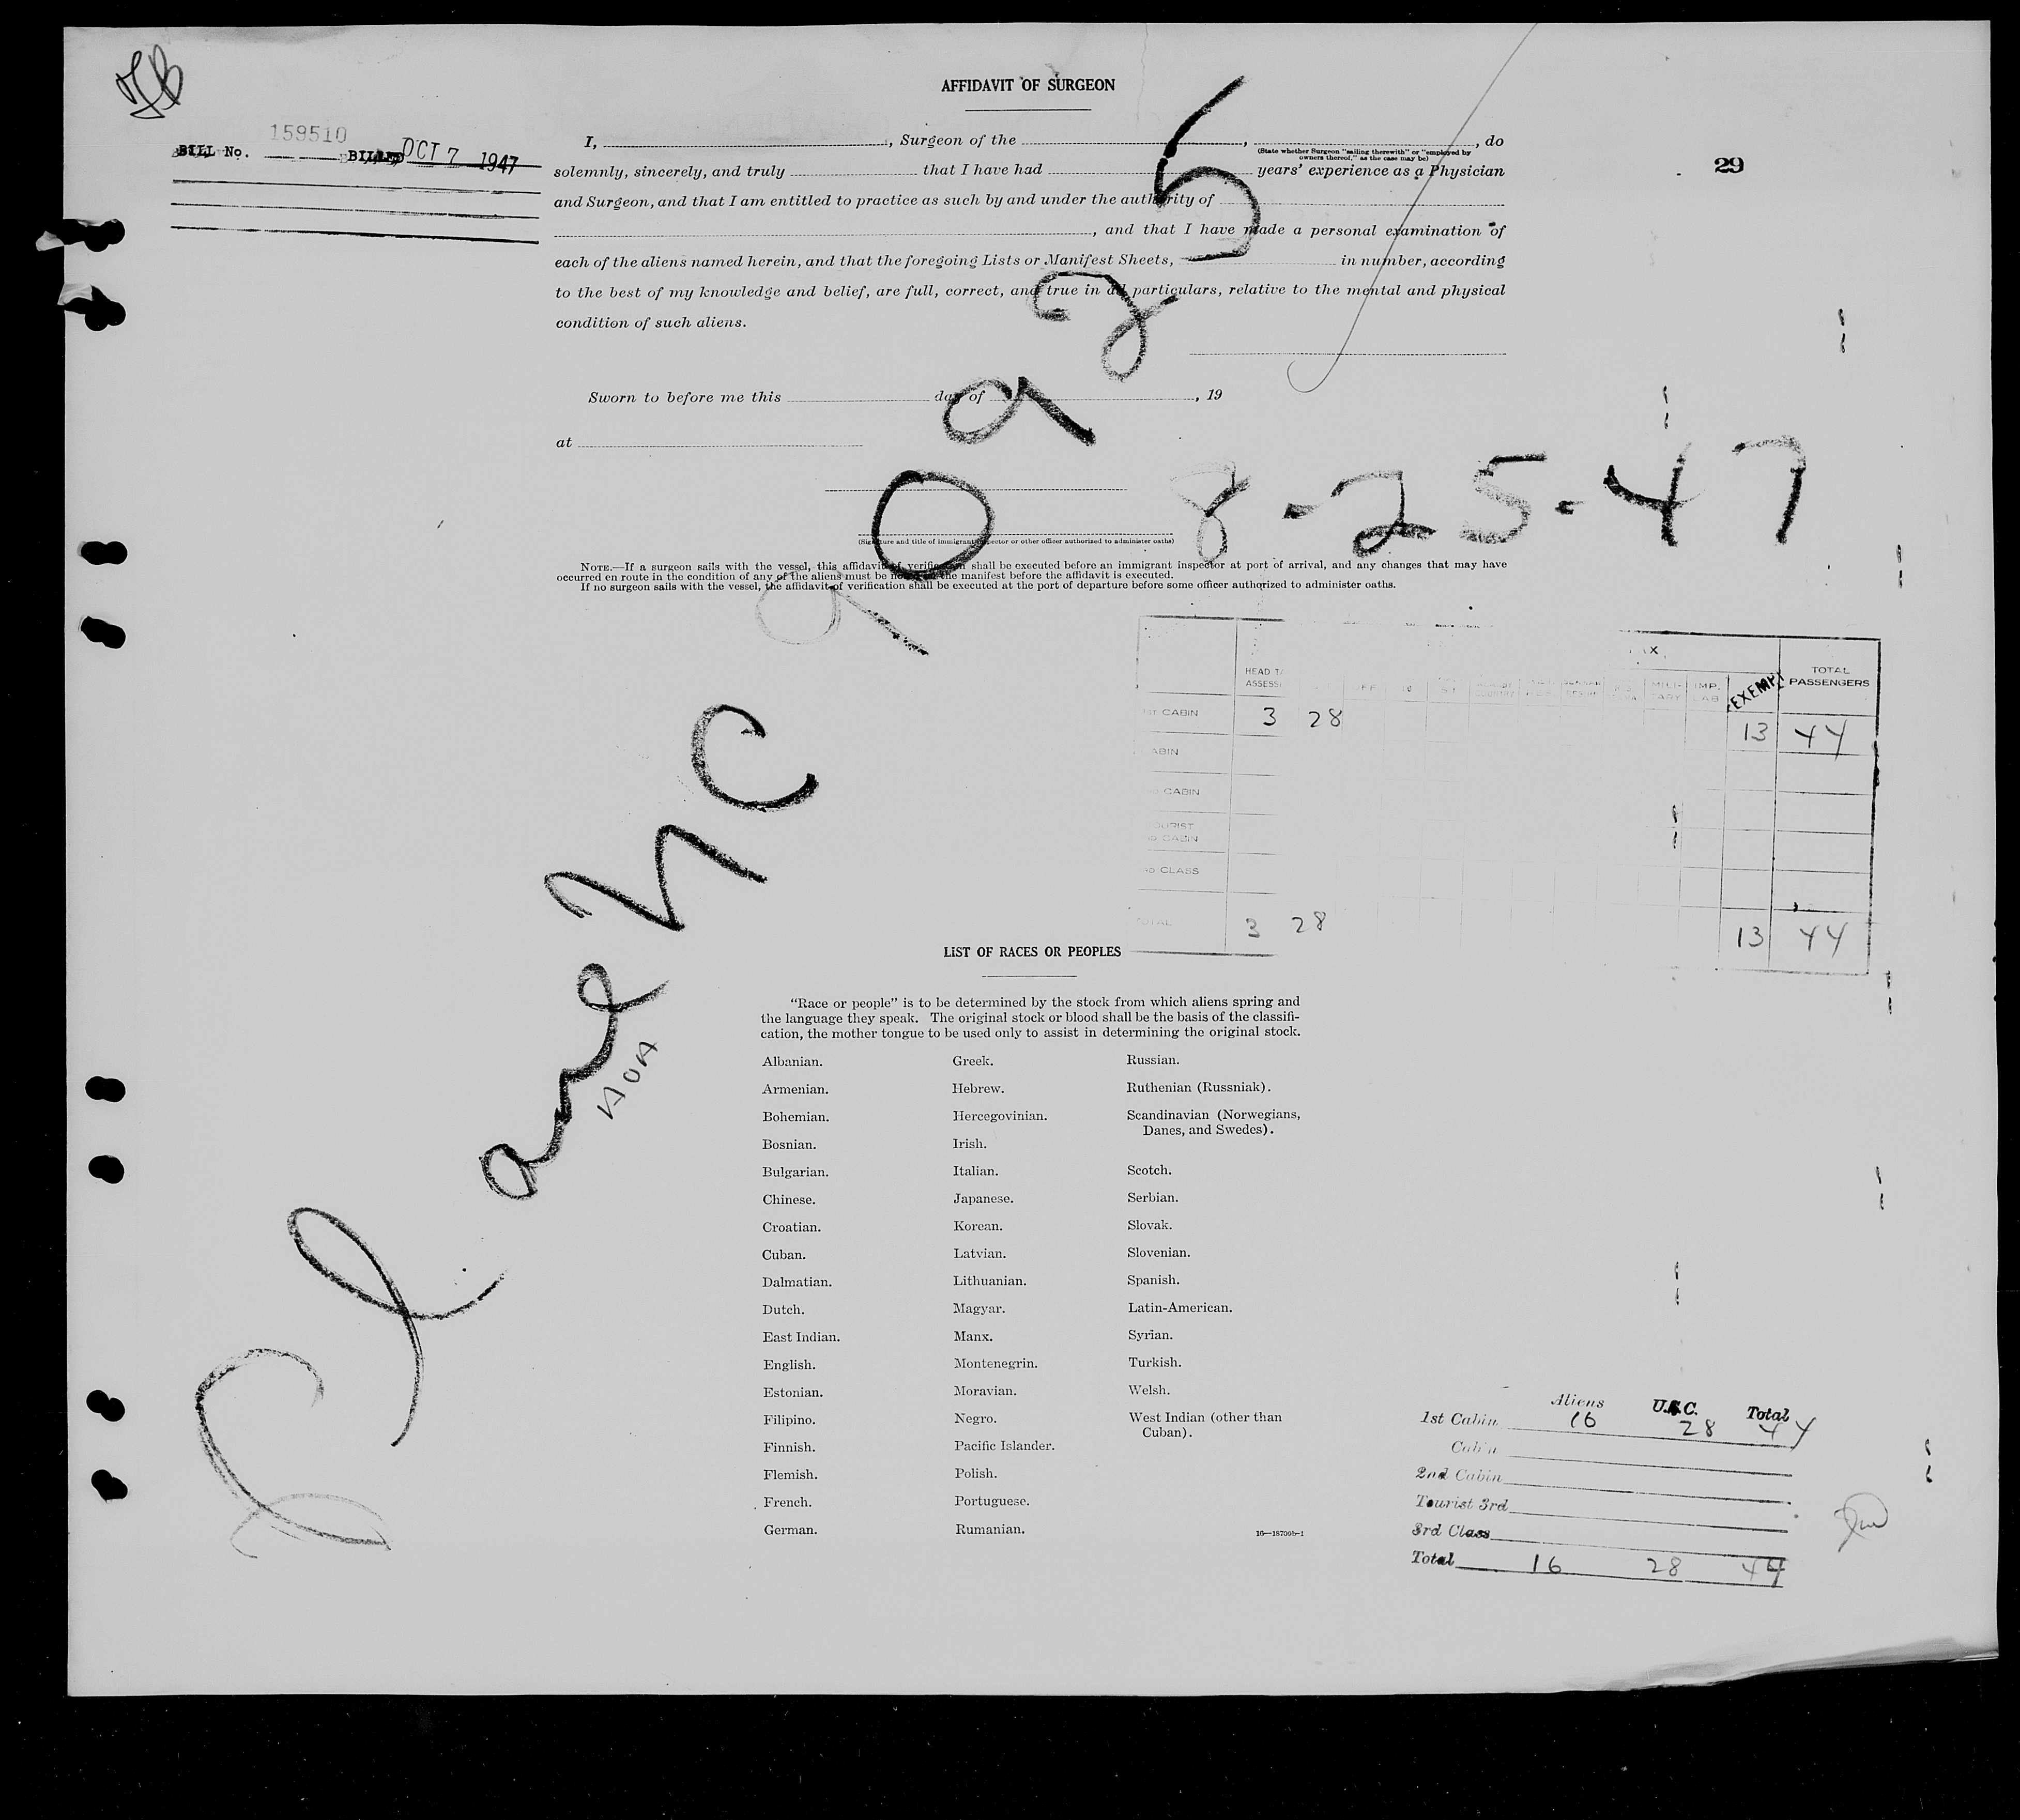 AFFIDAVIT OF SURGEON
BILL No. 159510 BILLED OCT 7 1947
29
I, , Surgeon of the , , do
(State whether Surgeon "sailing therewith" or "employed by
owners thereof," as the case may be)
solemnly, sincerely, and truly that I have had years' experience as a Physician
and Surgeon, and that I am entitled to practice as such by and under the authority of
, and that I have made a personal examination of
each of the aliens named herein, and that the foregoing Lists or Manifest Sheets, in number, according
to the best of my knowledge and belief, are full, correct, and true in all particulars, relative to the mental and physical
condition of such aliens.
Sworn to before me this day of , 19
at
(Signature and title of immigrant inspector or other officer authorized to administer oaths)
NOTE.—If a surgeon sails with the vessel, this affidavit of verification shall be executed before an immigrant inspector at port of arrival, and any changes that may have
occurred en route in the condition of any of the aliens must be noted on the manifest before the affidavit is executed.
If no surgeon sails with the vessel, the affidavit of verification shall be executed at the port of departure before some officer authorized to administer oaths.
Plane NC 90925
8-25-47
AOA
HEAD TA
ASSESS
MILI-
TARY
IMP.
EXEMPT
TOTAL
PASSENGERS
1ST CABIN 3 28 13 44
CABIN
CABIN
TOURIST
CABIN
CLASS
TOTAL 3 28 13 44
LIST OF RACES OR PEOPLES
"Race or people" is to be determined by the stock from which aliens spring and
the language they speak. The original stock or blood shall be the basis of the classifi-
cation, the mother tongue to be used only to assist in determining the original stock.
Albanian.
Armenian.
Bohemian.
Bosnian.
Bulgarian.
Chinese.
Croatian.
Cuban.
Dalmatian.
Dutch.
East Indian.
English.
Estonian.
Filipino.
Finnish.
Flemish.
French.
German.
Greek.
Hebrew.
Hercegovinian.
Irish.
Italian.
Japanese.
Korean.
Latvian.
Lithuanian.
Magyar.
Manx.
Montenegrin.
Moravian.
Negro.
Pacific Islander.
Polish.
Portuguese.
Rumanian.
Russian.
Ruthenian (Russniak).
Scandinavian (Norwegians,
Danes, and Swedes).
Scotch.
Serbian.
Slovak.
Slovenian.
Spanish.
Latin-American.
Syrian.
Turkish.
Welsh.
West Indian (other than
Cuban).
16—18709b-1
Aliens U.S.C. Total
1st Cabin 16 28 44
Cabin
2nd Cabin
Tourist 3rd
3rd Class
Total 16 28 44